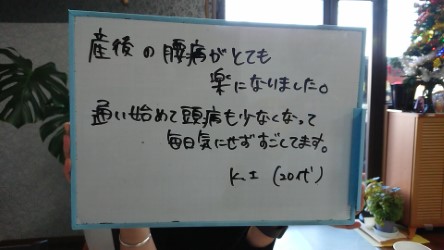 産後の腰痛がとても
楽になりました。
通い始めて頭痛も少なくなって
毎日気にせずすごしてます。
K.I (20代)